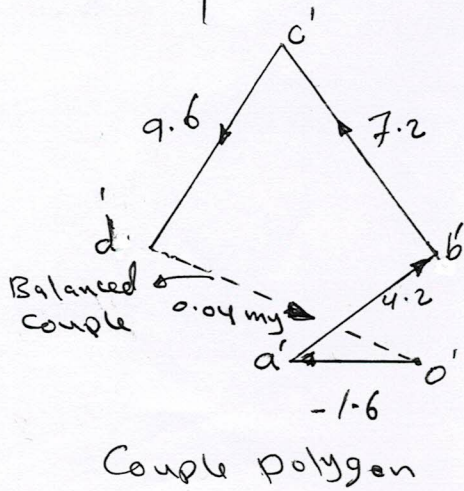 c'
9.6
7.2
d'
b'
Balanced
couple
0.04 my
4.2
a'
o'
-1.6
Couple polygon